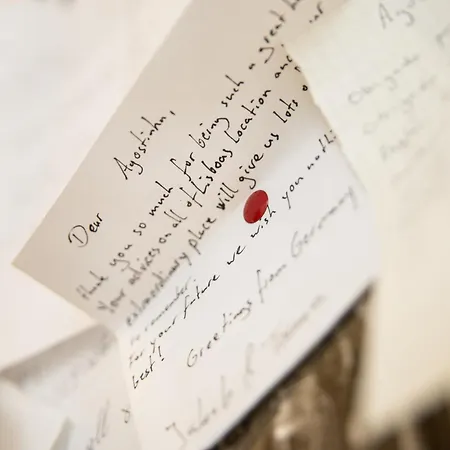 Dear Agostinho,
thank you so much for being such a great
Your advices on all of Lisboas location and
extraordinary place will give us lots
to remember.
For your future we wish you
best!
Greetings from Germany
Jakob &
Agos
Obrigado